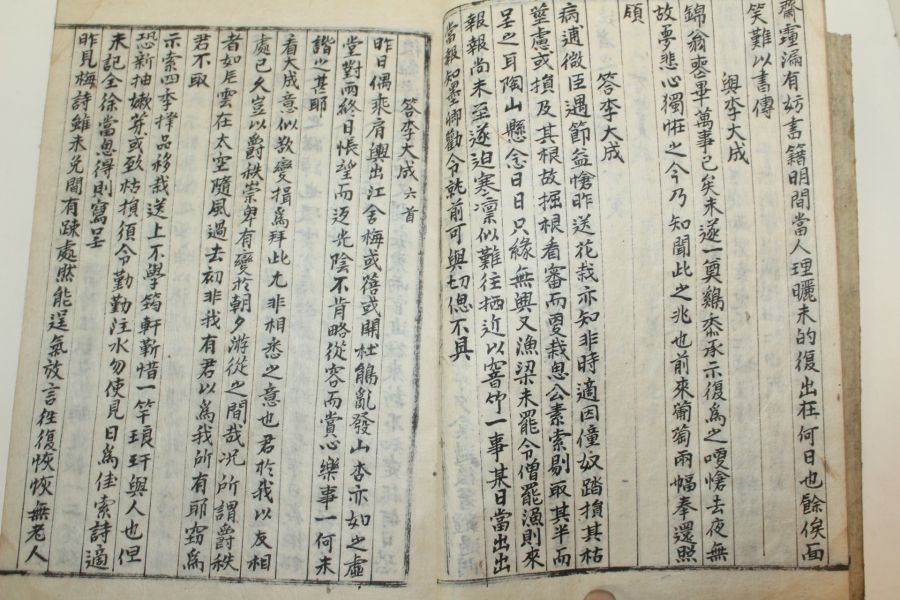 齋霊漏有妨書籍明間當人理曬未的復出在何日也餘俟面
笑難以書傳
與李大成
錦翁喪畢萬事已矣未遂一奠鷄黍承示復爲之哽愴去夜無
故夢悲心獨怪之今乃知聞此之兆也前來葡萄兩幅奉還照
領
答李大成
病逋微臣遇節益愴昨送花栽亦知非時適因僮奴踏損其枯
莖慮或損及其根故掘根看審而更栽思公素索剔取其半而
呈之耳陶山懸念日日只緣無與又漁梁未罷令僧罷漁則來
報報尚未至遂迫寒凛似難往栖近以窨竹一事某日當出出
當報知墨卿勸令就前可與切偲不具
答李大成六首
昨日偶乘肩輿出江舍梅或蓓或開杜鵑亂發山杏亦如之虛
堂對雨終日悵望而迈光陰不肯略從容而賞心樂事一何未
諧之甚耶
看大成意似欲變揖爲拜此尤非相悉之意也君於我以友相
處已久豈以爵秩崇卑有變於朝夕游從之間哉况所謂爵秩
者如片雲在太空隨風過去初非我有君以爲我所有耶竊爲
君不取
示索四季擇品移栽送上不學筠軒靳惜一竿琅玕與人也但
恐新抽嫩芽或致枯損須令勤勤注水勿使見日爲佳索詩適
未記全徐當思得則寫呈
昨見梅詩雖未免間有踈處然能逞氣放言往復恢恢無老人